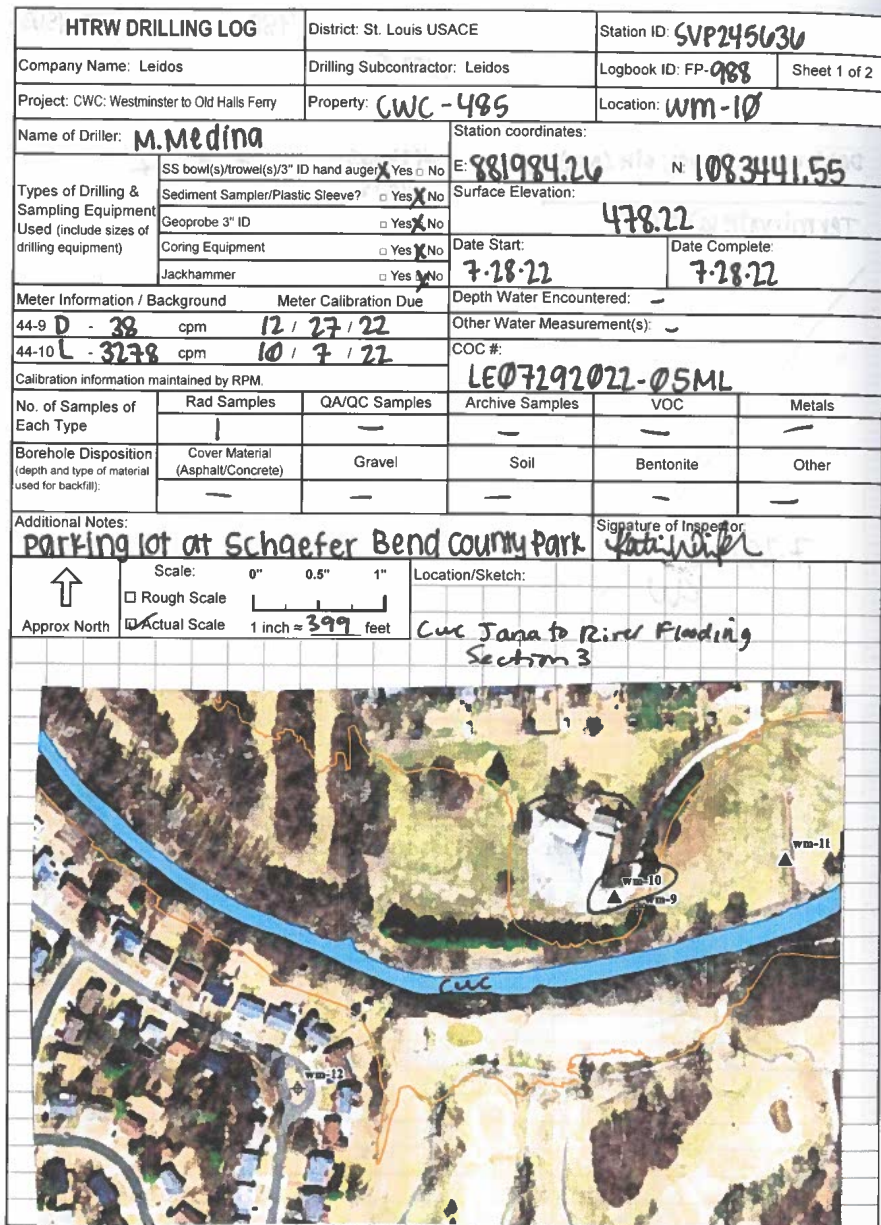 HTRW DRILLING LOG
District: St. Louis USACE
Station ID: SVP245636
Company Name: Leidos
Drilling Subcontractor: Leidos
Logbook ID: FP-988
Sheet 1 of 2
Project: CWC: Westminster to Old Halls Ferry
Property: CWC-485
Location: WM-10
Name of Driller: M.Medina
Station coordinates:
E: 881984.26 N: 1083441.55
Types of Drilling &
Sampling Equipment
Used (include sizes of
drilling equipment)
SS bowl(s)/trowel(s)/3" ID hand auger X Yes □ No
Sediment Sampler/Plastic Sleeve? □ Yes X No
Geoprobe 3" ID □ Yes X No
Coring Equipment □ Yes X No
Jackhammer □ Yes X No
Surface Elevation:
478.22
Date Start:
7-28-22
Date Complete:
7-28-22
Meter Information / Background Meter Calibration Due
44-9 D - 38 cpm 12 / 27 / 22
44-10 L - 3278 cpm 10 / 7 / 22
Calibration information maintained by RPM.
Depth Water Encountered: -
Other Water Measurement(s): -
COC #:
LE07292022-05ML
No. of Samples of
Each Type
Rad Samples QA/QC Samples Archive Samples VOC Metals
1 - - - -
Borehole Disposition
(depth and type of material
used for backfill):
Cover Material
(Asphalt/Concrete)
Gravel Soil Bentonite Other
- - - - -
Additional Notes:
Parking lot at Schaefer Bend County Park
Signature of Inspector
Approx North
Scale: 0" 0.5" 1"
□ Rough Scale
☑ Actual Scale 1 inch ≈ 399 feet
Location/Sketch:
CWC Jana to River Flooding
Section 3
wm-11
wm-10
wm-9
CWC
wm-12